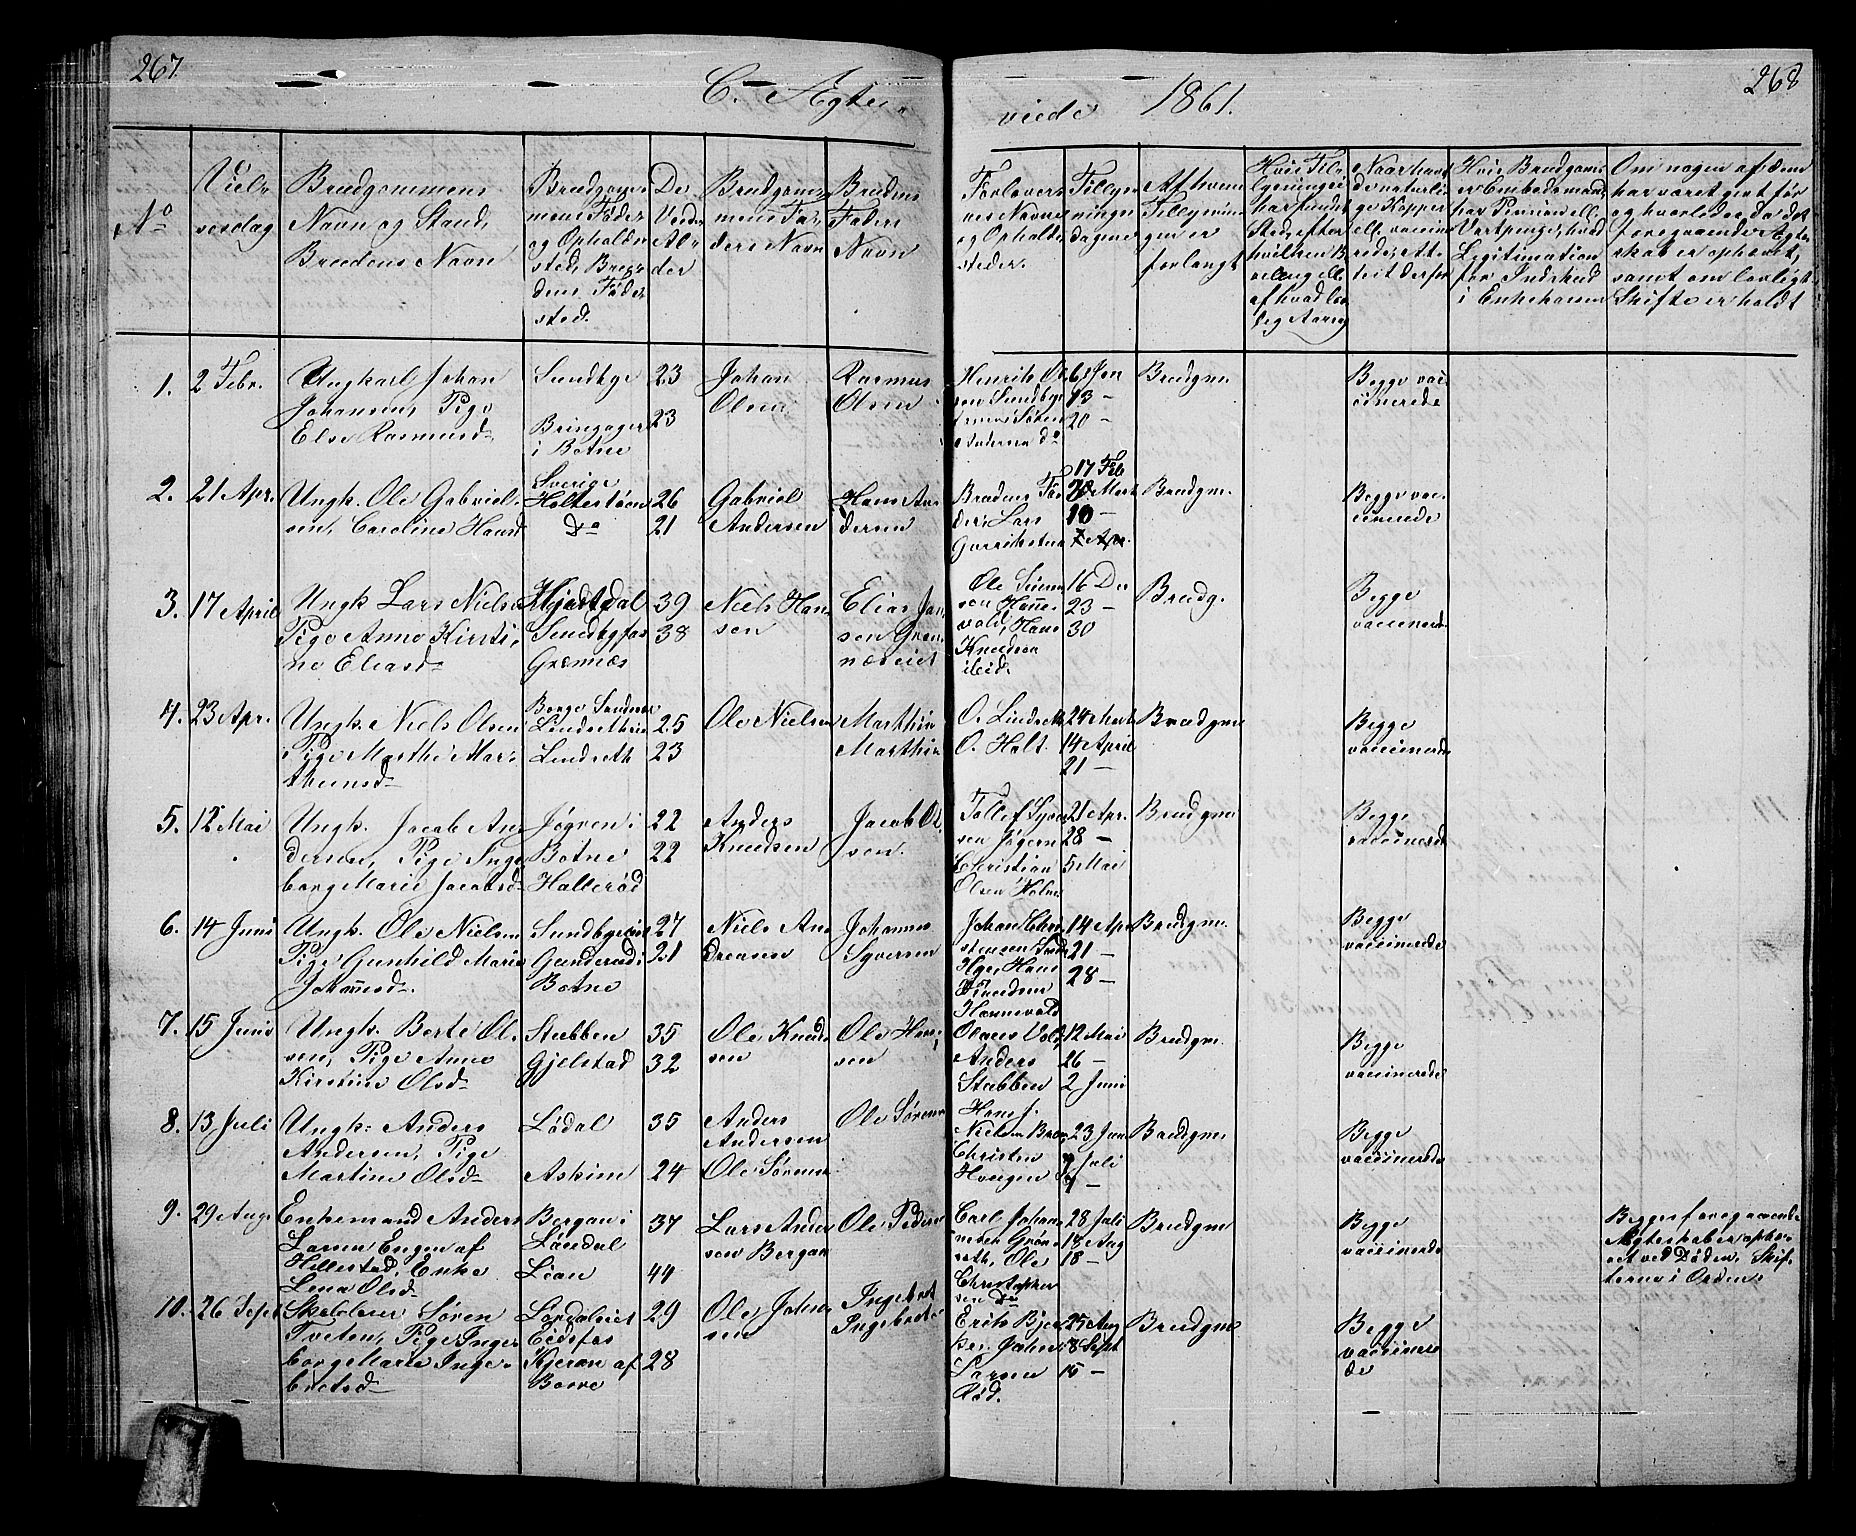 267.
C. Ægte
viede 1861.
268
No
Viel-
sesdag
Brudgommens
Navn og Stand,
Brudens Navn
Brudgom-
mens Føde-
og Opholds-
sted, Bru-
dens Føde-
sted.
De
Viedes
Al-
der
Brudgom-
mens Fa-
ders Navn
Brudens
Faders
Navn
Forlover-
nes Navne
og Opholds-
steder.
Tillys-
nings-
dagene
Af hvem
Tillysnin-
gen er
forlangt
Hvis Til-
lysning ei
har fundet
Sted, efter
hvilken Be-
villing ell.
af hvad lov-
lig Aarsag
Naar havt
de naturli-
ge Kopper
ell. vaccine-
rede, Att-
test derfor
Hvis Brudgom.
er Embedsmand,
har Pension ell.
Vartpenge, hvad
Legitimation
for Indskud
i Enkekassen
Om nogen af dem
har været gift før
og hvorledes da det
foregaaende Ægte-
skab er ophævet,
samt om lovligt
Skifte er holdt
1. 2 Febr.
Ungkarl Johan
Johansen, Pige
Else Rasmusd.
Sundbye
Bringager
i Botne
23
23
Johan
Olsen
Rasmus
Olsen
Henrik Ol-
sen Sundby
6 Jan
13 —
20 —
Brudgm.
Begge vac-
cinerede
2. 21 Apr.
Ungk. Ole Gabriel-
sen, Caroline Hansd
Sverige
Holtestøen
Do
26
21
Gabriel
Andersen
Hans An-
dersen
Brudens Fa-
der, Lars
17 Feb
10 —
7 Apr.
Brudgm.
Begge vac-
cinerede
3. 17 April
Ungk. Lars Nielsen
Pige Anne Kirsti-
ne Eliasd.
Hjertdal
Grennæs
39
38
Niels Han-
sen
Elias Jan-
sen Gren-
næseiet
Ole Simen-
sen Hanne-
vold, Hans
Knudsen
ibid.
16 Dec
23 —
30
Brudg.
Begge
vaccinerede
4. 23 Apr.
Ungk. Niels Olsen
Pige Marthe Mar-
thinsd.
Lindseth
25
23
Ole Nielsen
Marthin
Marthin
O. Lindseth
O. Holt.
24 Mart
14 April
21 —
Brudgm
Begge
vaccinerede
5. 12 Mai
Ungk. Jacob An-
dersen, Pige Inge-
borg Marie Jacobsd.
Jøgren i
Botne
Hallerød
22
22
Anders
Knudsen
Jacob Ol-
sen.
Tollef Syver-
sen Jøgern
Christian
Olsen Holm
21 Apr.
28 —
5 Mai
Brudgm
Begge
vaccinerede
6. 14 Juni
Ungk. Ole Nielsen
Pige Gunhild Marie
Johannesd.
Sundbyeiet
Gunderud i
Botne
27
21
Niels An-
dreasen
Johannes
Syversen
Johan Chri-
stensen Sund-
bye, Hans
Knudsen
Hannevold
14 Apr
21 —
28 —
Brudgm.
Begge
vaccinerede
7. 15 Juni
Ungk. Berte Ol-
sen, Pige Anne
Kirstine Olsd.
Stubben
Gjelstad
35
32
Ole Knud-
sen
Ole Han-
sen
Olaves Vold,
Anders
Stubben
12 Mai
26 —
2 Juni
Brudgm.
Begge
vaccinerede
8. 13 Juli
Ungk. Anders
Andersen, Pige
Martine Olsd.
Lødal
Askim
35
24
Anders
Andersen
Ole Sørensen
Ole Sørensen
Hans J.
Nielsen
Christen
Haugen
23 Juni
7 Juli
Brudgm
Begge
vaccinerede
9. 29 Aug.
Enkemand Anders
Larsen Engen af
Hillestad, Enke
Lena Olsd.
Bergan i
Laurdal
Lian
37
44
Lars Ander-
sen Bergan
Ole Peders
Carl Johan-
nesen Grøn-
seth, Ole
Christopher-
sen do
28 Juli
18 —
Brudgm
Begge
vaccinerede
Begges foregaaende
Ægteskaber ophæ-
vet ved Døden, Skif-
terne i Orden.
10. 26 Sept
Søren
Tveten, Pige Inge-
borg Marie Inge-
bretsd.
Eidsfos
Kjeran af
Borre
29
28
Ole Johan-
sen
Ingebret
Ingebretsen
Erik Bjer-
Larsen
Rød.
25 Aug
8 Sept
15 —
Brudgm
Begge
vaccinere-
de